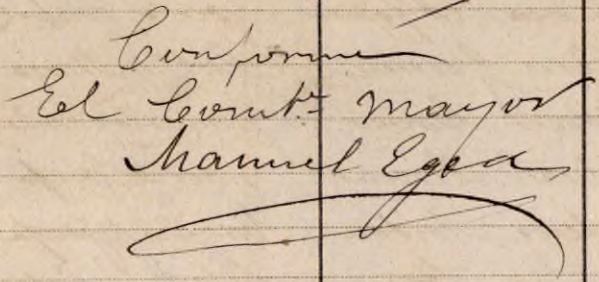 Conforme
El Comte mayor
Manuel Egea